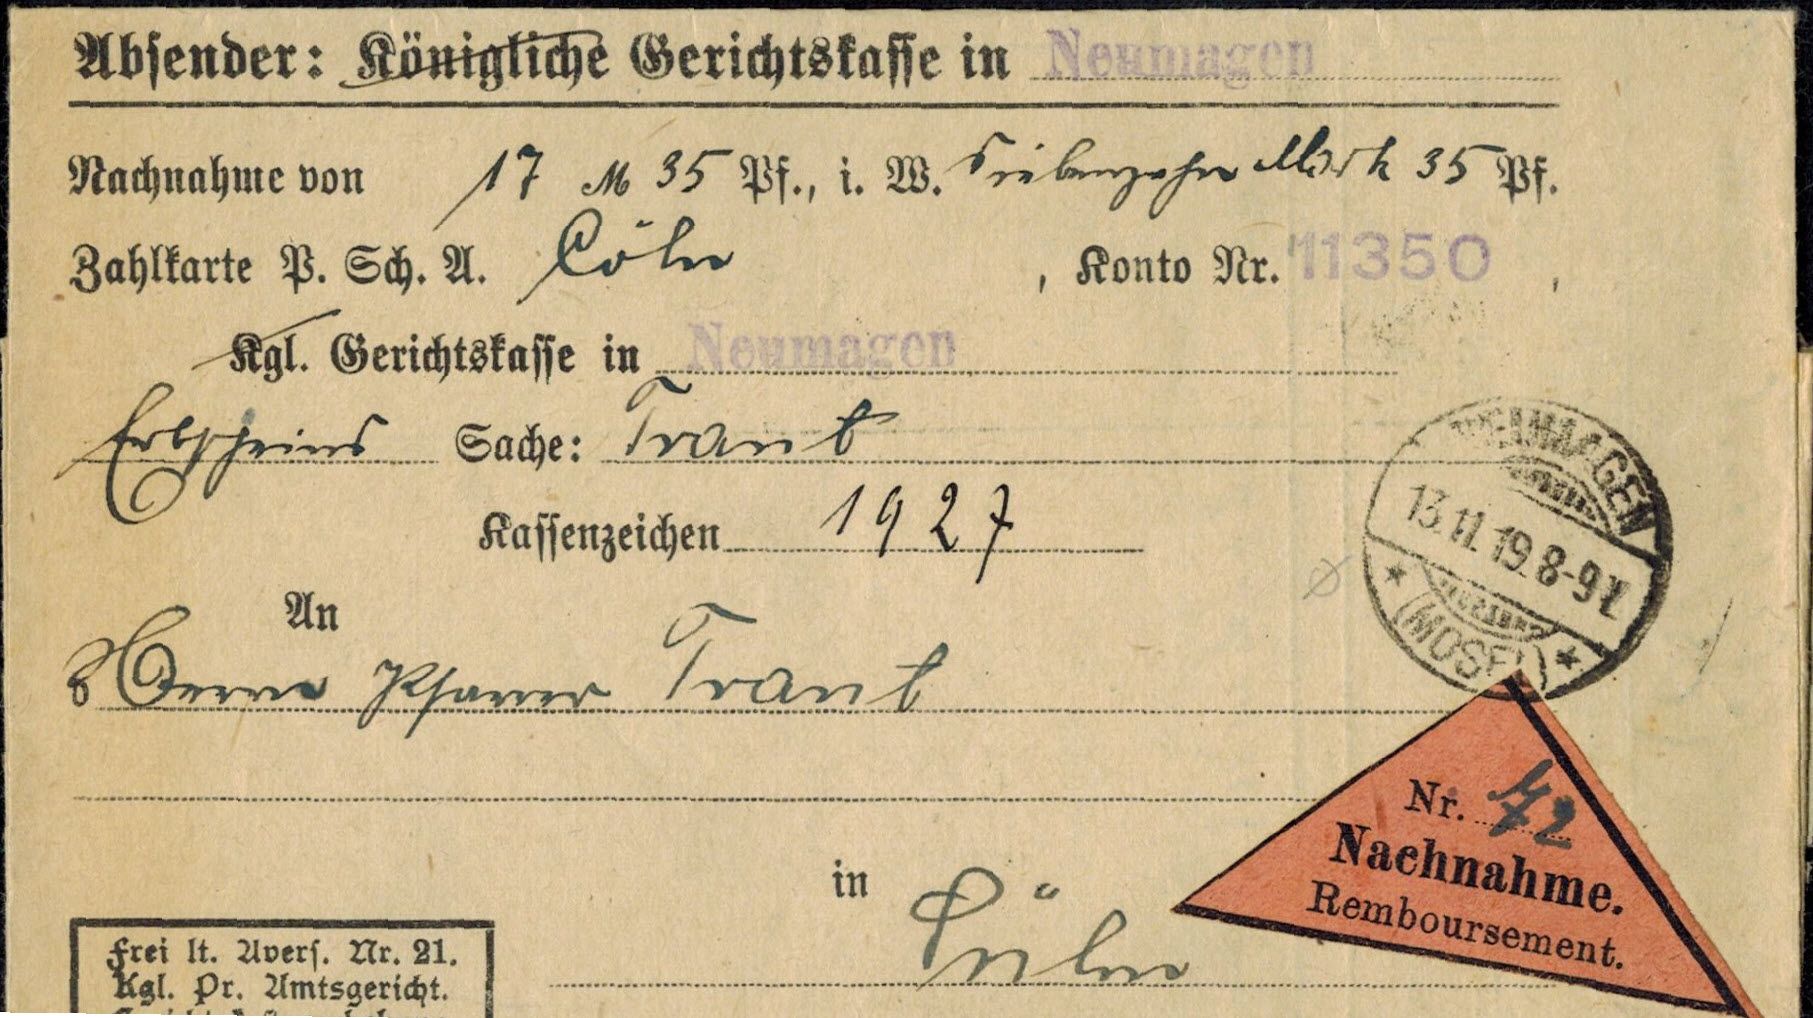 Absender: Königliche Gerichtskasse in Neumagen
Nachnahme von 17 M 35 Pf., i. W. Siebenzehn Mark 35 Pf.
Zahlkarte P. Sch. A. Cöln, Konto Nr. 11350,
Kgl. Gerichtskasse in Neumagen
Erbscheins Sache: Traut
Kassenzeichen 1927
NEUMAGEN
13.11.19.8-9V.
(MOSEL)
An
Herrn Pfarrer Traut
Nr. 72
Nachnahme.
Remboursement.
in
Frei lt. Avers. Nr. 21.
Kgl. Pr. Amtsgericht.